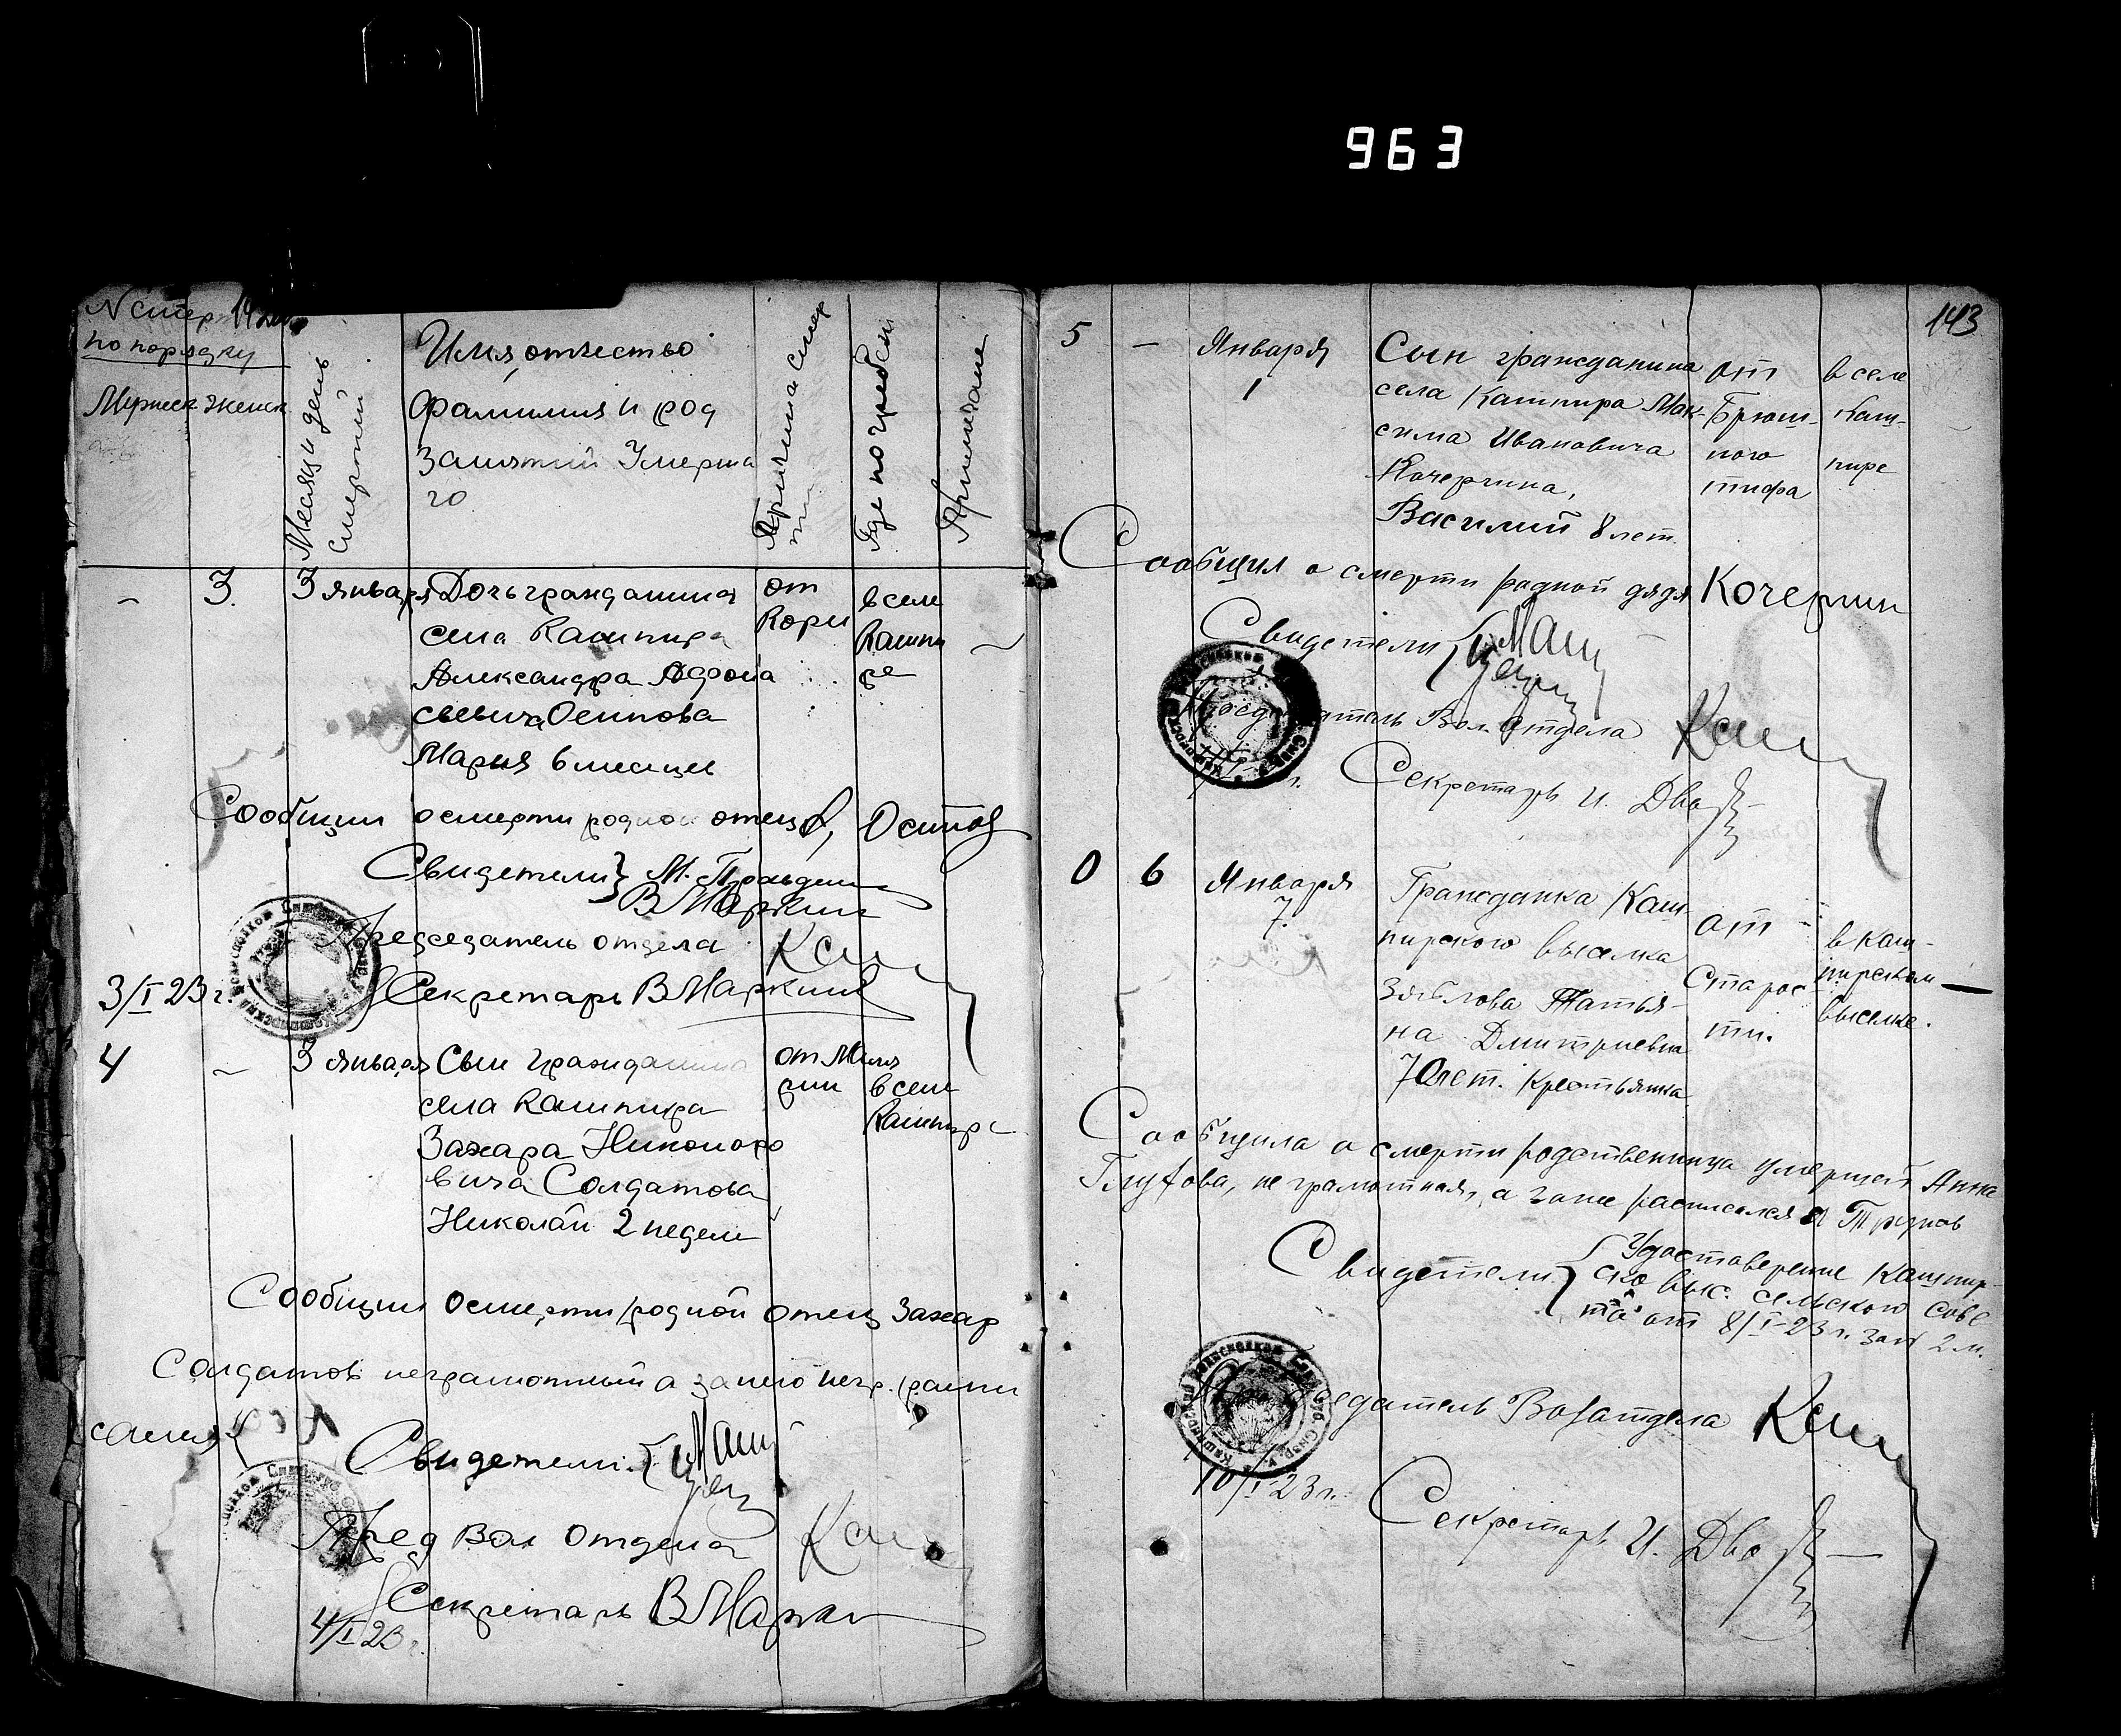 963
N смер
по порядку
Мужеск Женск
Месяц и день
смертий
Имя, отчество
Фамилия и род
Занятий Умерша
го
Причина смер
ти
Где погребен
Примечание
–
3.
3 января
Дочь гражданина
села Кашпира
Александра
Осипова
Мария 6 месяцев
от
Кори
в селе
Кашпи
ре
Сообщил о смерти родной отец Осипов
Свидетели} М.
В Маркин
Председатель отдела
3/I 23 г.
Секретарь В Маркин
4
–
3 января
Сын гражданина
села Кашпира
Захара
вича Солдатова
Николай 2 недели
в селе
Кашпире
Сообщил о смерти родной отец Захар
Солдатов неграмотный а за него
Свидетели
Пред Вол Отдела
Секретарь В
4/I 23 г.
143
5
–
Января
1
Сын гражданина
села Кашпира Мак-
сима Ивановича
Кочергина,
Василий 8 лет.
от
Брюш-
ного
тифа
в селе
Каш-
пире
Сообщил о смерти родной дядя
Свидетели
Вол. отдела
Секретарь И.
0
6
Января
7.
Гражданка Каш-
пирского выселка
Зяблова Татья-
на Дмитриевна
70 лет. Крестьянка
от
Старос
ти.
в Каш-
пирском
выселке.
–
Сообщила о смерти родственница умершей Анна
неграмотная, а за нее расписался
Свидетели {Удостоверение Кашпир-
ско выс. сельского сове
та от 8/I-23 г. за N 2 м.
Секретарь И.
10/I 23 г.